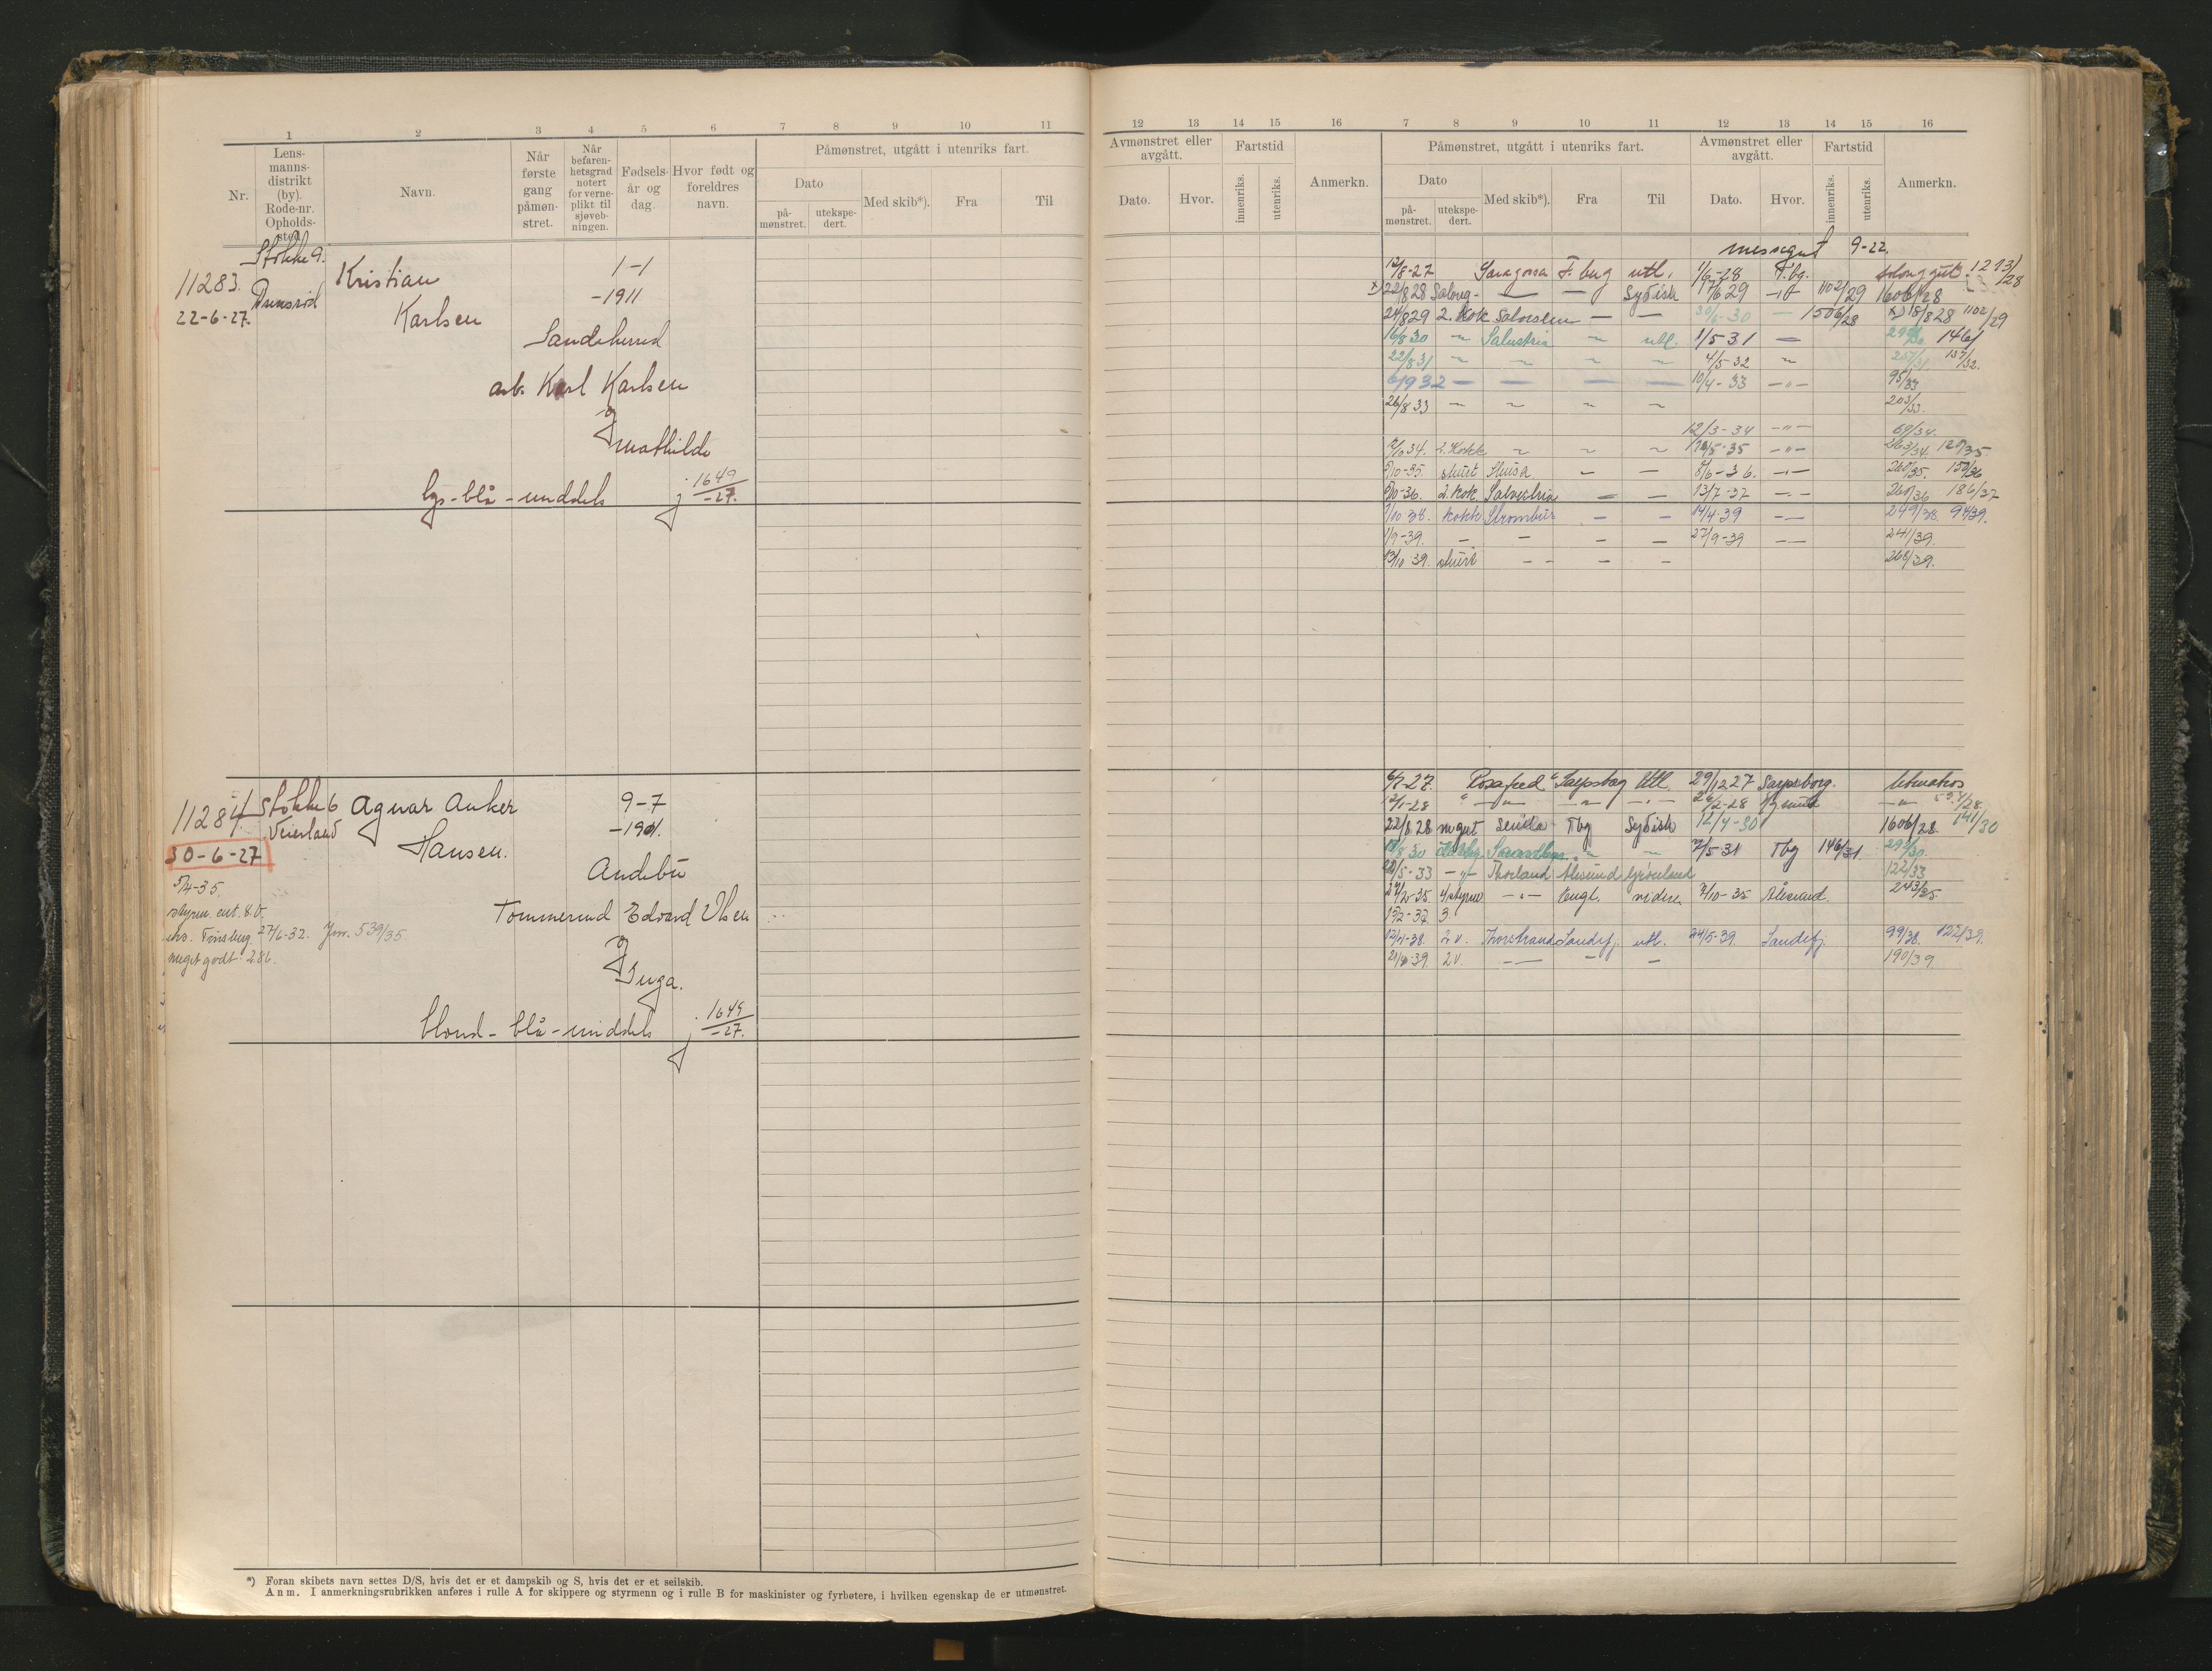 1 2 3 4 5 6 7 8 9 10 11
Nr.
Lens-
manns-
distrikt
(by).
Rode-nr.
Opholds-
sted.
Navn.
Når
første
gang
påmøn-
stret.
Når
befaren-
hetsgrad
notert
for verne-
plikt til
sjøveb-
ningen.
Fødsels-
år og
dag.
Hvor født og
foreldres
navn.
Påmønstret, utgått i utenriks fart.
Dato
på-
mønstret.
utekspe-
dert.
Med skib*).
Fra
Til
Stokke 9.
11283.
22-6-27.
Kristian
Karlsen
1-1
-1911
Sandeherred
arb. Karl Karlsen
og
Mathilde
lys-blå-middels j. 1649/-27.
11284
Stokke 6
Veierland
30-6-27
Agnar Anker
Hansen.
9-7
-1901.
Andebu
Tommerud Edvard Olsen
og
Inga.
5/4-35.
27/6-32. Jnr. 539/35.
meget godt 286.
blond-blå-middels j. 1649/-27.
*) Foran skibets navn settes D/S, hvis det er et dampskib og S, hvis det er et seilskib.
Anm. I anmerkningsrubrikken anføres i rulle A for skippere og styrmenn og i rulle B for maskinister og fyrbøtere, i hvilken egenskap de er utmønstret.
12 13 14 15 16 7 8 9 10 11 12 13 14 15 16
Avmønstret eller
avgått.
Dato.
Hvor.
Fartstid
innenriks.
utenriks.
Anmerkn.
Påmønstret, utgått i utenriks fart.
Dato
på-
mønstret.
utekspe-
dert.
Med skib*).
Fra
Til
Avmønstret eller
avgått.
Dato.
Hvor.
Fartstid
innenriks.
utenriks.
Anmerkn.
messegut 9-22.
12/8-27 Saragossa T.berg utl. 1/6-28 T.bg. salonggut. 1213/28
x) 22/8 28 Salong- — — Sydish 17/6 29 1102/29 1606/28
24/8 29 2. Kok — — 30/6-30 — 1506/28 x) 18/8 28 1102/29
16/8 30 Salustria utl. 1/5-31 — 146/
22/8 31 4/5-32 137/32.
1932 — — — — 10/4-33 -"- 95/33
26/8 33 203/33.
12/3-34 -"- 69/34.
34. 2. Kokk 5-35 -"- 263/34. 120/35
/10-35. stuert Sluisa — 8/6-36. 260/35. 150/36
/10-36. 2. Kok Salvestria — — 13/7-37 260/36 186/37
/10 38. kokk Strombus — — 14/4-39 249/38. 94/39.
1/9-39. — — — — 27/9-39 241/39.
13/10 39. stuert -- — — 268/39.
6/7-27. Rosafred Sarpsborg Utl. 29/12 27 Sarpsborg. letmatros
12/1-28 /2-28
22/8 28 m.gut Sevilla Tbg Sydish 12/4-30 1606/28. 141/30
/8 30 7/5-31 Tbg 146/31 292/30.
/5-33 Thorland Ålesund Grønland 122/33
27/2-35. 4 styrm Engl. 7/10-35 Ålesund. 243/35.
/2-37. 3
12/4-38. 2 v. Thorstrand Sandefj. utl. 24/5-39. Sandefj. 99/38. 127/39.
39. 2 v. — — 190/39.